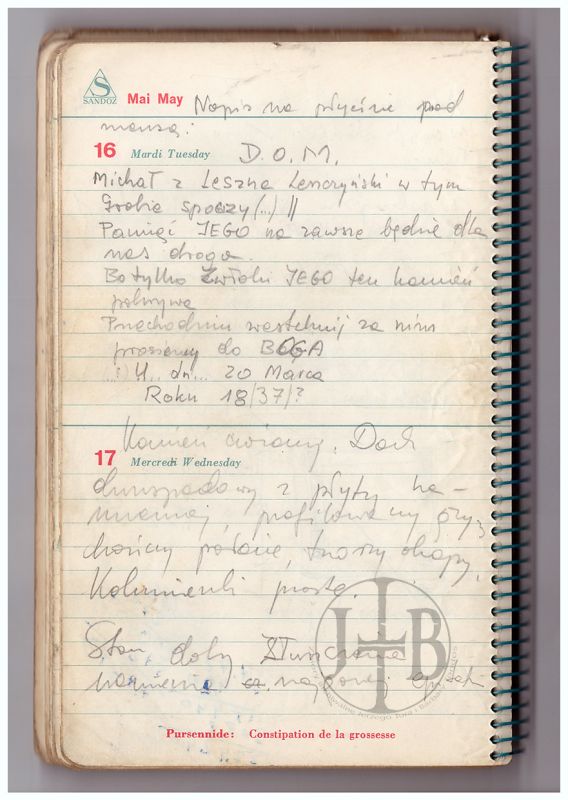 SANDOZ
Mai May Napis na płycinie pod
mensą:
16 Mardi Tuesday D.O.M.
Michał z Leszna Lenczyński w tym
Grobie spoczy (...) //
Pamięć JEGO na zawsze będzie dla
nas drogą.
Bo tylko Zwłoki JEGO ten kamień
pokrywa
Przechodniu westchnij za nim
prosiemy do BOGA
(..) U.. dn... 20 Marca
Roku 18/37/?
Kamień ciosany. Dach
17 Mercredi Wednesday
dwuspadowy z płyty ka-
miennej, profilowany przy
połaci, tworzy okapy.
Kolumienki proste.
Stan dobry Złuszczenia
kamienia
JTB
Pursennide: Constipation de la grossesse